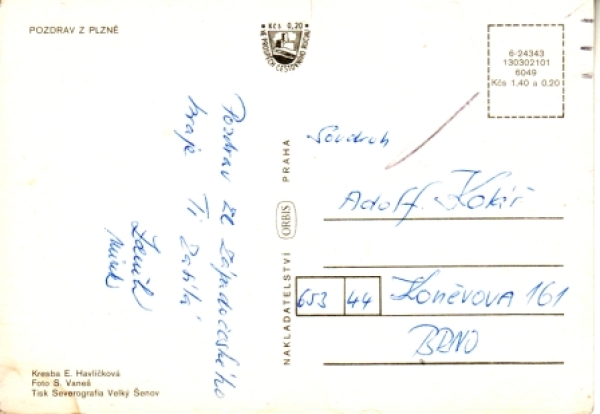 POZDRAV Z PLZNĚ
Kčs 0,20
VE PROSPĚCH CESTOVNÍHO RUCHU
6-24343
130302101
6049
Kčs 1,40 a 0,20
Pozdrav ze západočeského
kraje Ti zasílá
NAKLADATELSTVÍ ORBIS PRAHA
Soudruh
Adolf Kolář
653 44 Koněvova 161
BRNO
Kresba E. Havlíčková
Foto S. Vaneš
Tisk Severografia Velký Šenov